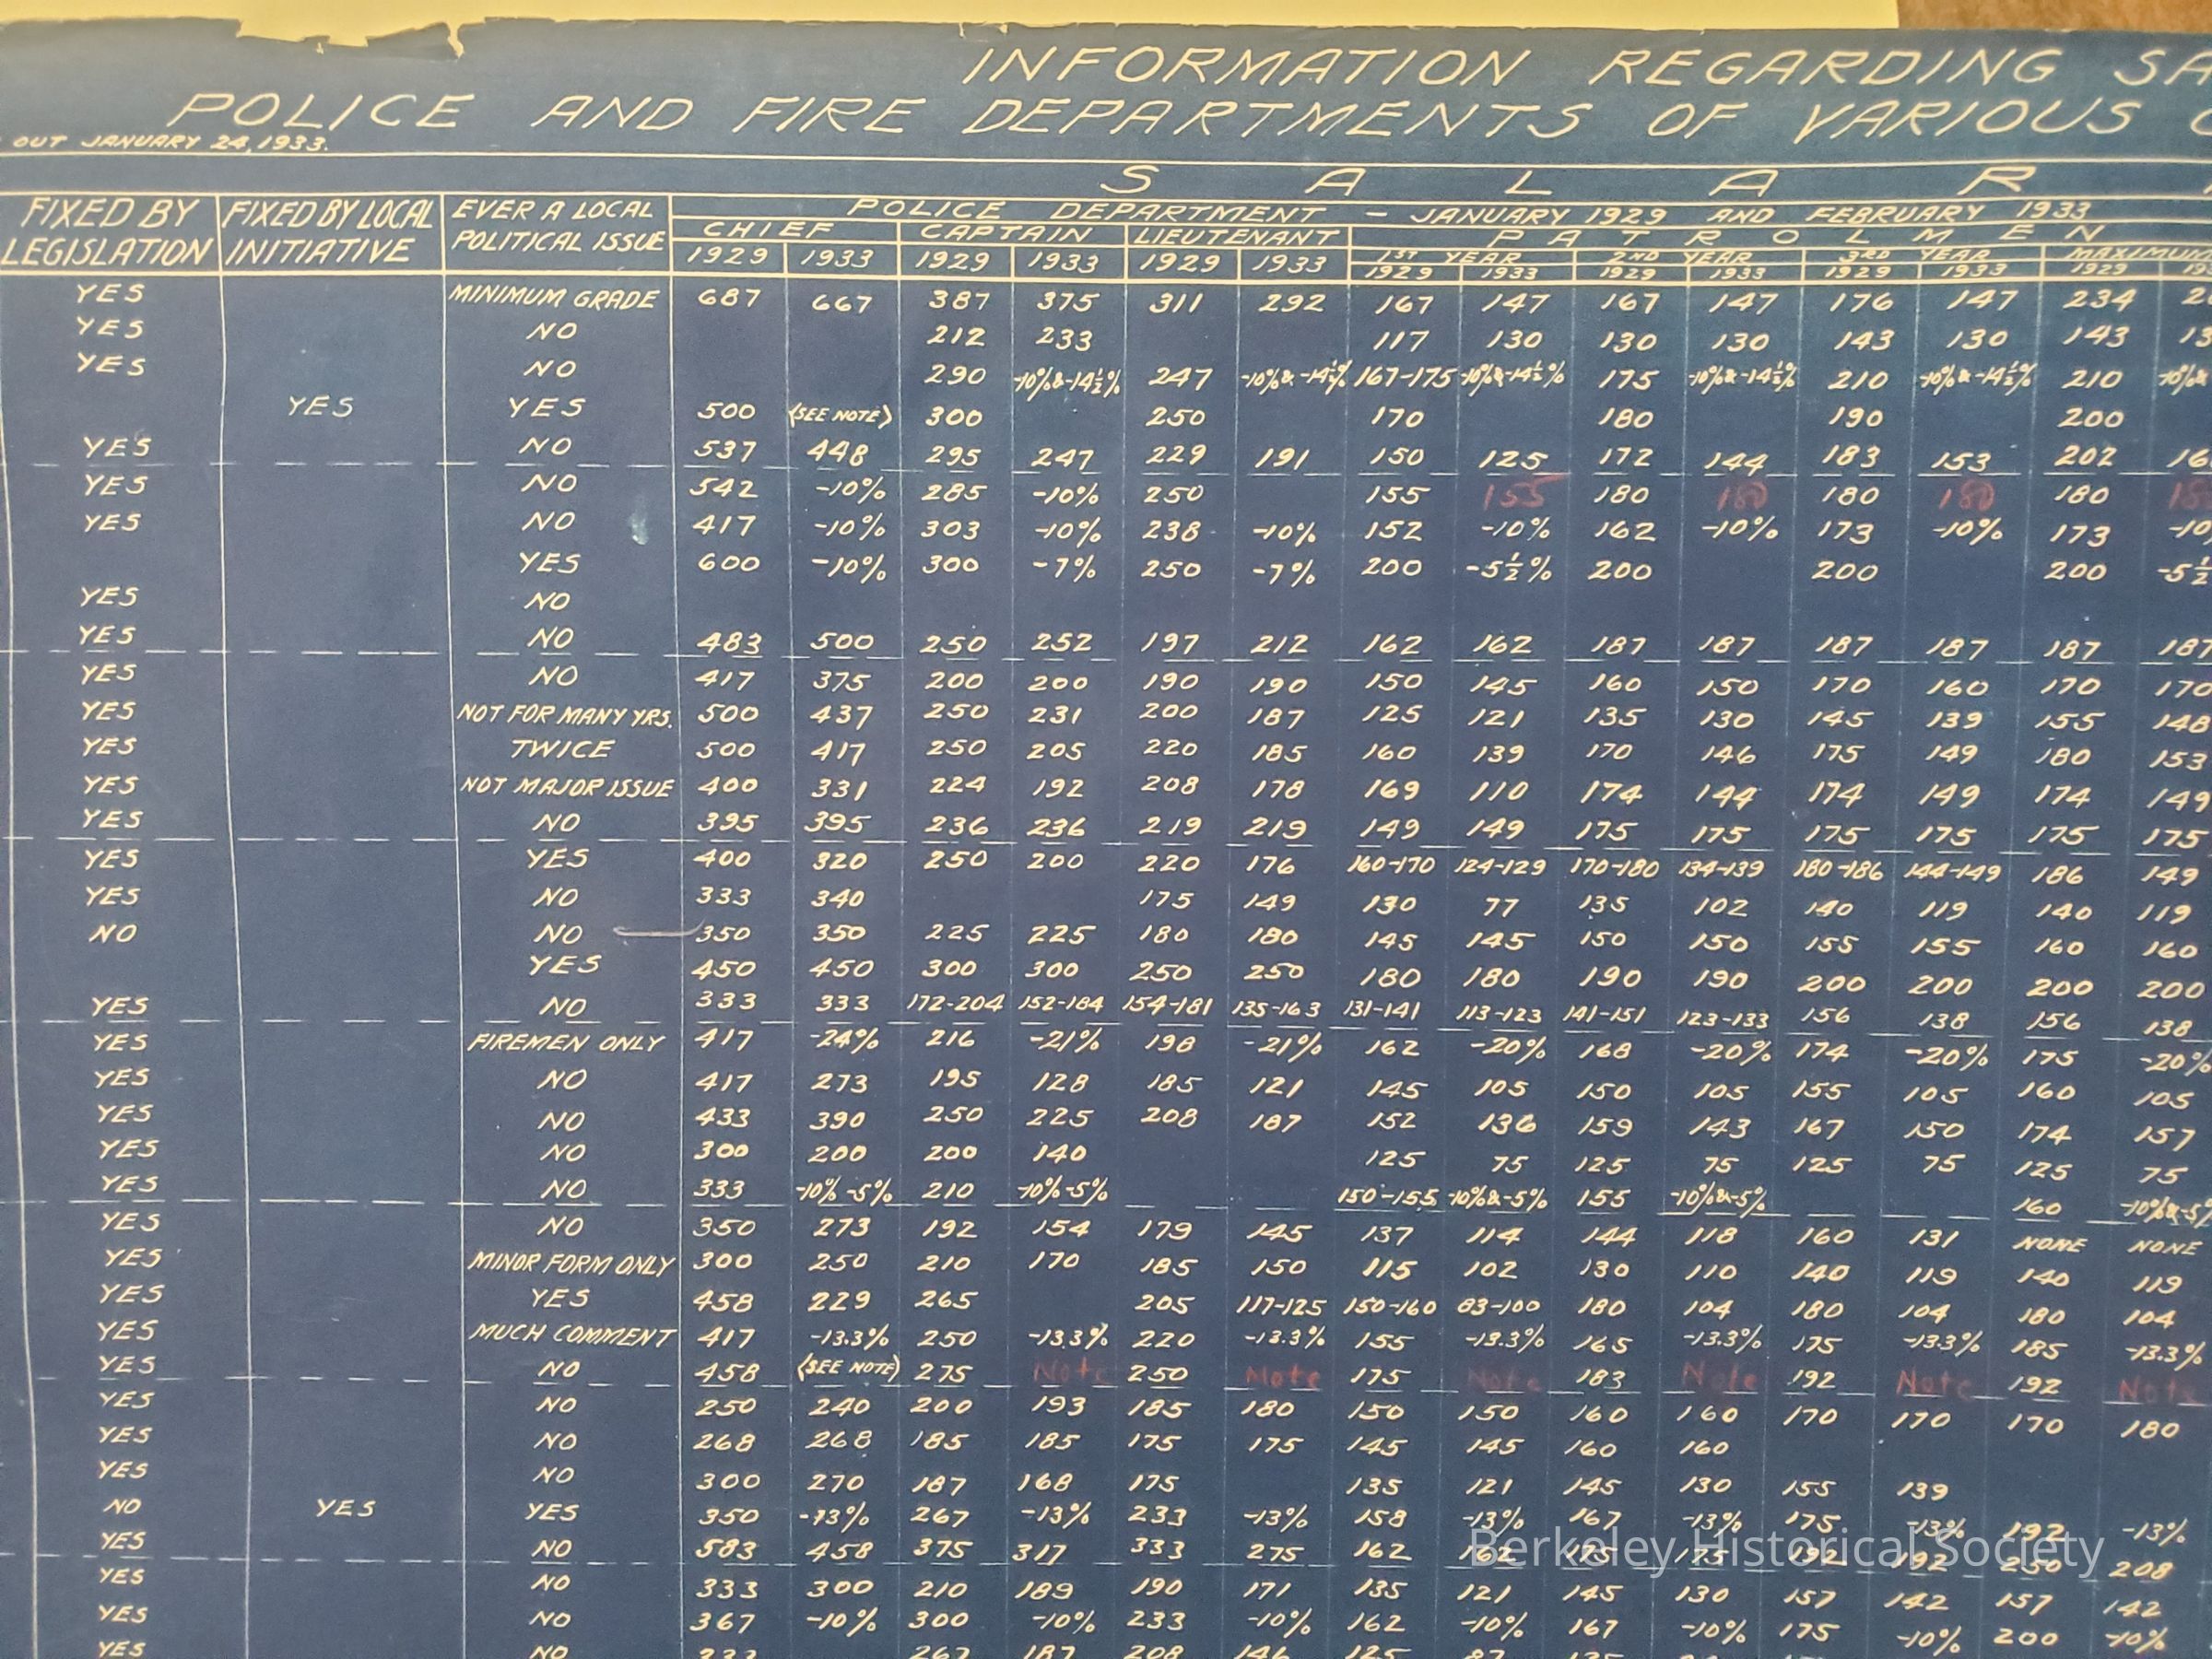 INFORMATION REGARDING
POLICE AND FIRE DEPARTMENTS OF VARIOUS
OUT JANUARY 24, 1933.
S A L A R
FIXED BY LEGISLATION FIXED BY LOCAL INITIATIVE EVER A LOCAL POLITICAL ISSUE POLICE DEPARTMENT - JANUARY 1929 AND FEBRUARY 1933
CHIEF CAPTAIN LIEUTENANT PATROLMEN
1ST YEAR 2ND YEAR 3RD YEAR MAXIMUM
1929 1933 1929 1933 1929 1933 1929 1933 1929 1933 1929 1933 1929
YES MINIMUM GRADE 687 667 387 375 311 292 167 147 167 147 176 147 234
YES NO 212 233 117 130 130 130 143 130 143
YES NO 290 -10%&-14½% 247 -10%&-14½% 167-175 -10%&-14½% 175 -10%&-14½% 210 -10%&-14½% 210
YES YES 500 (SEE NOTE) 300 250 170 180 190 200
YES NO 537 448 295 247 229 191 150 125 172 144 183 153 202
YES NO 542 -10% 285 -10% 250 155 155 180 180 180 180 180
YES NO 417 -10% 303 -10% 238 -10% 152 -10% 162 -10% 173 -10% 173
YES 600 -10% 300 -7% 250 -7% 200 -5½% 200 200 200 -5½
YES NO
YES NO 483 500 250 252 197 212 162 162 187 187 187 187 187 187
YES NO 417 375 200 200 190 190 150 145 160 150 170 160 170 170
YES NOT FOR MANY YRS. 500 437 250 231 200 187 125 121 135 130 145 139 155 148
YES TWICE 500 417 250 205 220 185 160 139 170 146 175 149 180 153
YES NOT MAJOR ISSUE 400 331 224 192 208 178 169 110 174 144 174 149 174 149
YES NO 395 395 236 236 219 219 149 149 175 175 175 175 175 175
YES YES 400 320 250 200 220 176 160-170 124-129 170-180 134-139 180-186 144-149 186 149
YES NO 333 340 175 149 130 77 135 102 140 119 140 119
NO NO 350 350 225 225 180 180 145 145 150 150 155 155 160 160
YES 450 450 300 300 250 250 180 180 190 190 200 200 200 200
YES NO 333 333 172-204 152-184 154-181 135-163 131-141 113-123 141-151 123-133 156 138 156 138
YES FIREMEN ONLY 417 -24% 216 -21% 198 -21% 162 -20% 168 -20% 174 -20% 175 -20%
YES NO 417 273 195 128 185 121 145 105 150 105 155 105 160 105
YES NO 433 390 250 225 208 187 152 136 159 143 167 150 174 157
YES NO 300 200 200 140 125 75 125 75 125 75 125 75
YES NO 333 -10% -5% 210 -10% -5% 150-155 -10%&-5% 155 -10%&-5% 160 -10%&-5%
YES NO 350 273 192 154 179 145 137 114 144 118 160 131 NONE NONE
YES MINOR FORM ONLY 300 250 210 170 185 150 115 102 130 110 140 119 140 119
YES YES 458 229 265 205 117-125 150-160 83-100 180 104 180 104 180 104
YES MUCH COMMENT 417 -13.3% 250 -13.3% 220 -13.3% 155 -13.3% 165 -13.3% 175 -13.3% 185 -13.3%
YES NO 458 (SEE NOTE) 275 Note 250 Note 175 Note 183 Note 192 Note 192 Note
YES NO 250 240 200 193 185 180 150 150 160 160 170 170 170 180
YES NO 268 268 185 185 175 175 145 145 160 160
YES NO 300 270 187 168 175 135 121 145 130 155 139
NO YES YES 350 -13% 267 -13% 233 -13% 158 -13% 167 -13% 175 -13% 192 -13%
YES NO 583 458 375 317 333 275 162 162 175 175 192 192 250 208
Berkeley Historical Society
YES NO 333 300 210 189 190 171 135 121 145 130 157 142 157 142
YES NO 367 -10% 300 -10% 233 -10% 162 -10% 167 -10% 175 -10% 200 -10%
YES NO 267 187 208 146